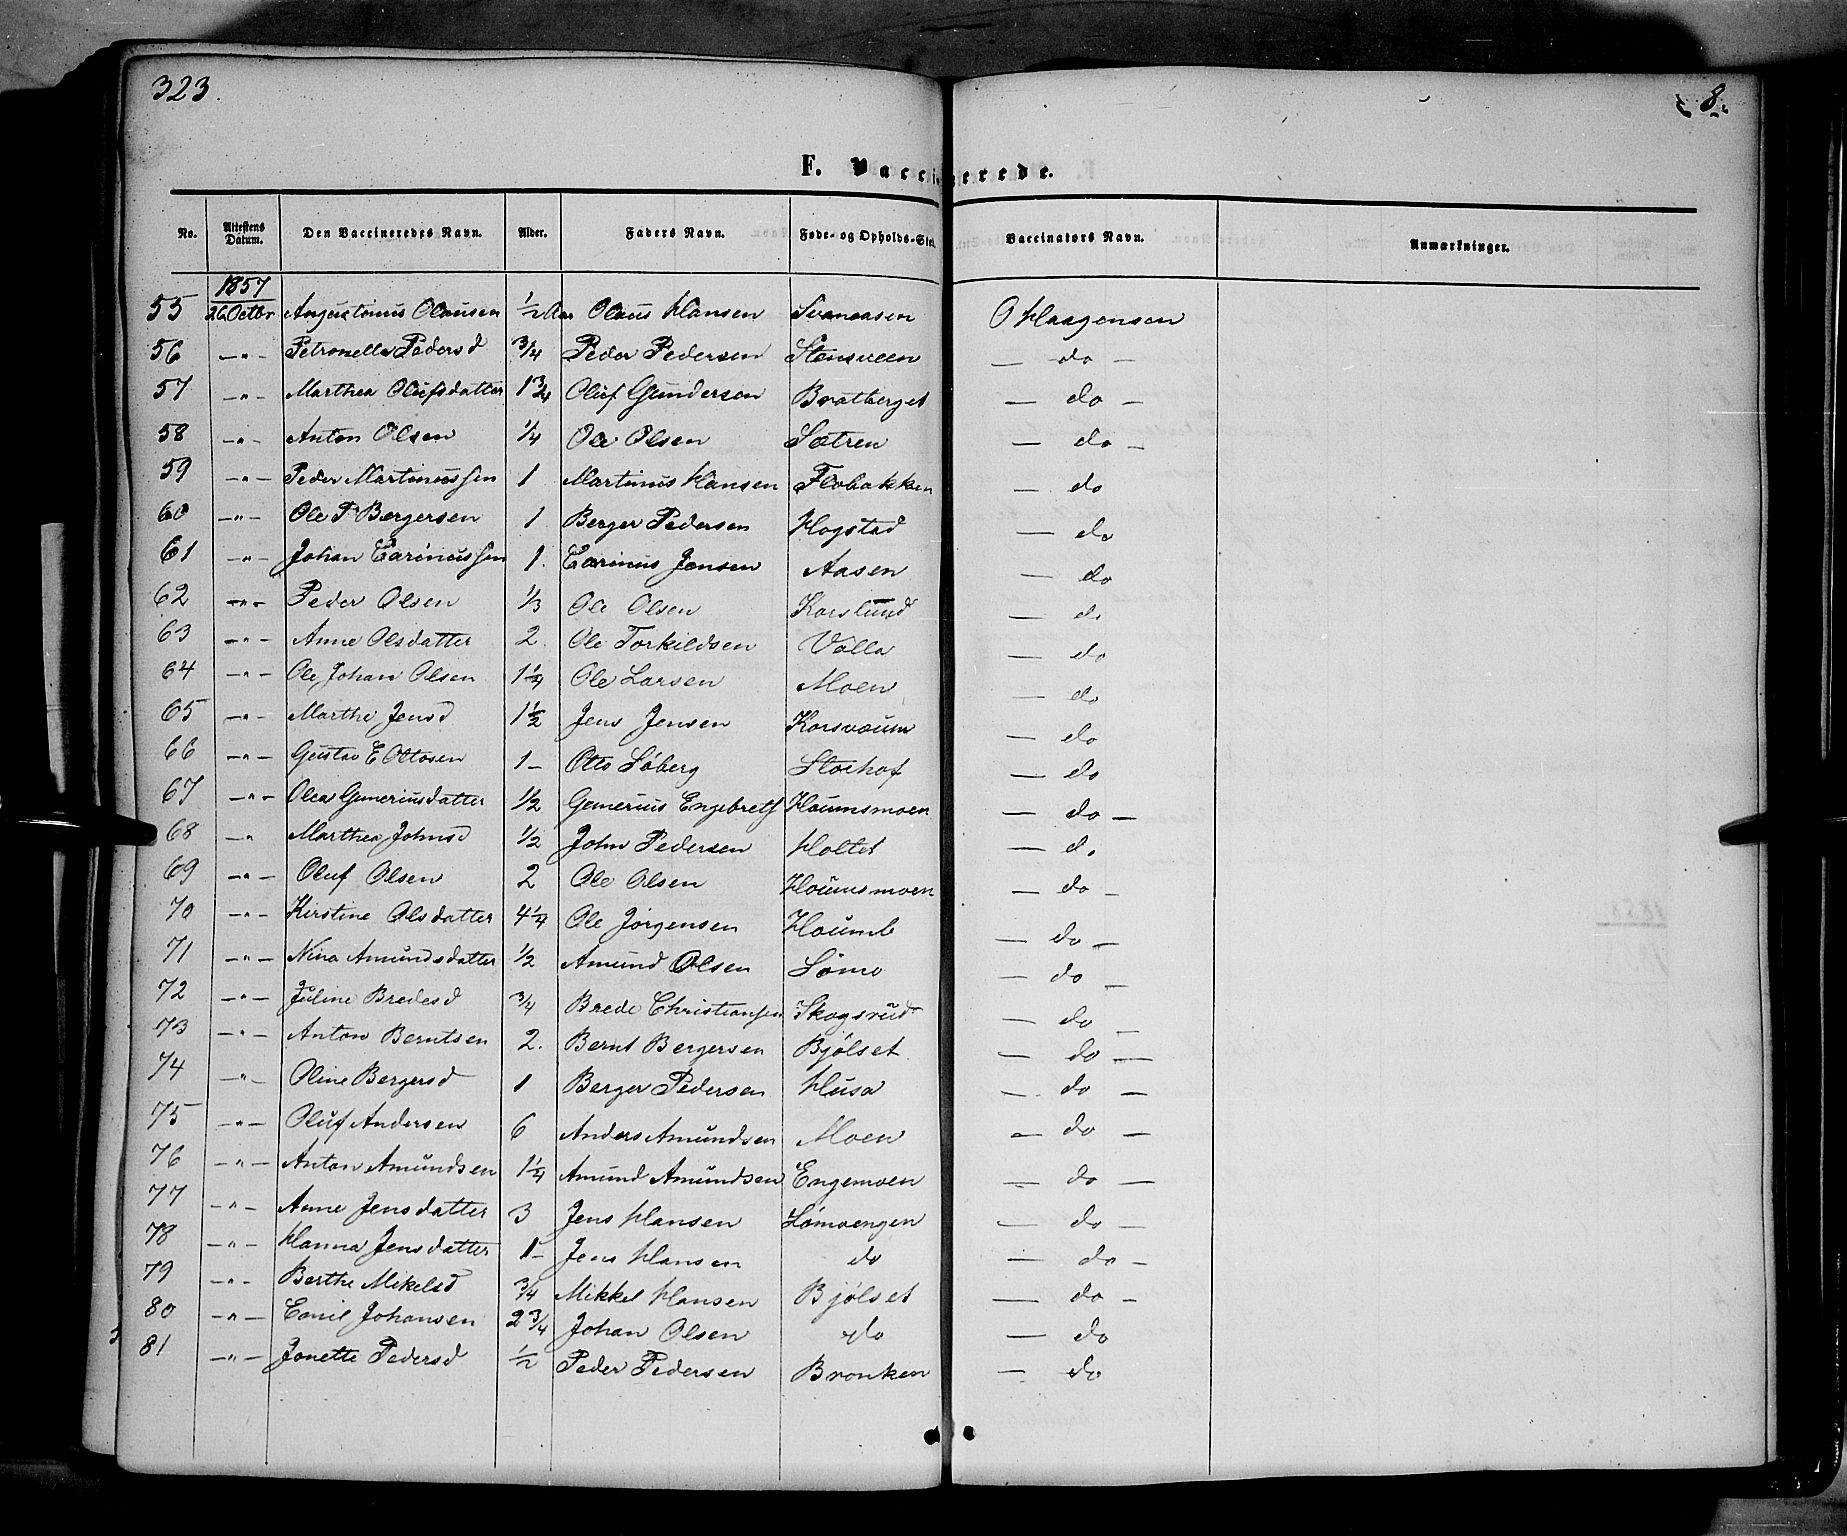 323.
8.
F. Vaccinerede.
No. Attestens Datum. Den Vaccineredes Navn. Alder. Faders Navn. Føde- og Opholds-Sted. Vaccinators Navn. Anmærkninger.
1857
55 26 Octbr Augustinus Olausen 1/2 Aar Olaus Hansen Svenaasen O Haagensen
56 —"— Petronelle Pedersd 3/4 Peder Pedersen Stensveen — do —
57 —"— Marthea Olufsdatter 1 3/4 Oluf Gundersen Bratberget — do —
58 —"— Anton Olsen 1/4 Ole Olsen Sætren — do —
59 —"— Peder Martinussen 1 Martinus Hansen Flobakken — do
60 —"— Ole P Bergersen 1 Berger Pedersen Hogstad — do
61 —"— Johan Carinussen 1. Carinus Jensen Aasen — do
62 —"— Peder Olsen 1/3 Ole Olsen Korslund — do
63 —"— Anne Olsdatter 2. Ole Torkildsen Volla — do
64 —"— Ole Johan Olsen 1 1/4 Ole Larsen Moen — do
65 —"— Marthe Jensd 1 1/2 Jens Jensen Korsvæum — do
66 —"— Gustav E Ottosen 1— Otto Løberg — do
67 —"— Olea Guneriusdatter 1/2 Gunerius Engebretss Houmsmoen — do —
68 —" Marthea Johnsd 1/2 John Pedersen Holtet — do
69 —"— Oluf Olsen 2 Ole Olsen Houmsmoen — do —
70 —"— Kirstine Olsdatter 4 1/4 Ole Jørgensen Houmb — do —
71 —"— Nina Amundsdatter 1/2 Amund Olsen Lømo — do —
72 —"— Juline Bredesd 3/4 Brede Christiansen Skogsrud — do —
73 —"— Anton Berntsen 2. Bernt Bergersen Bjølset — do —
74 —"— Oline Bergersd 1 Berger Pedersen Husa — do —
75 —"— Oluf Andersen 6 Anders Amundsen Moen — do —
76 —"— Anton Amundsen 1 1/4 Amund Amundsen Engemoen — do —
77 —"— Anne Jensdatter 3 Jens Hansen Lømoengen — do —
78 —"— Hanna Jensdatter 1— Jens Hansen do — do —
79 —"— Berthe Mikelsd 3/4 Mikkel Hansen Bjølset — do —
80 —"— Emil Johansen 2 3/4 Johan Olsen do — do
81 —"— Jonette Pedersd 1/2 Peder Pedersen Bronken — do